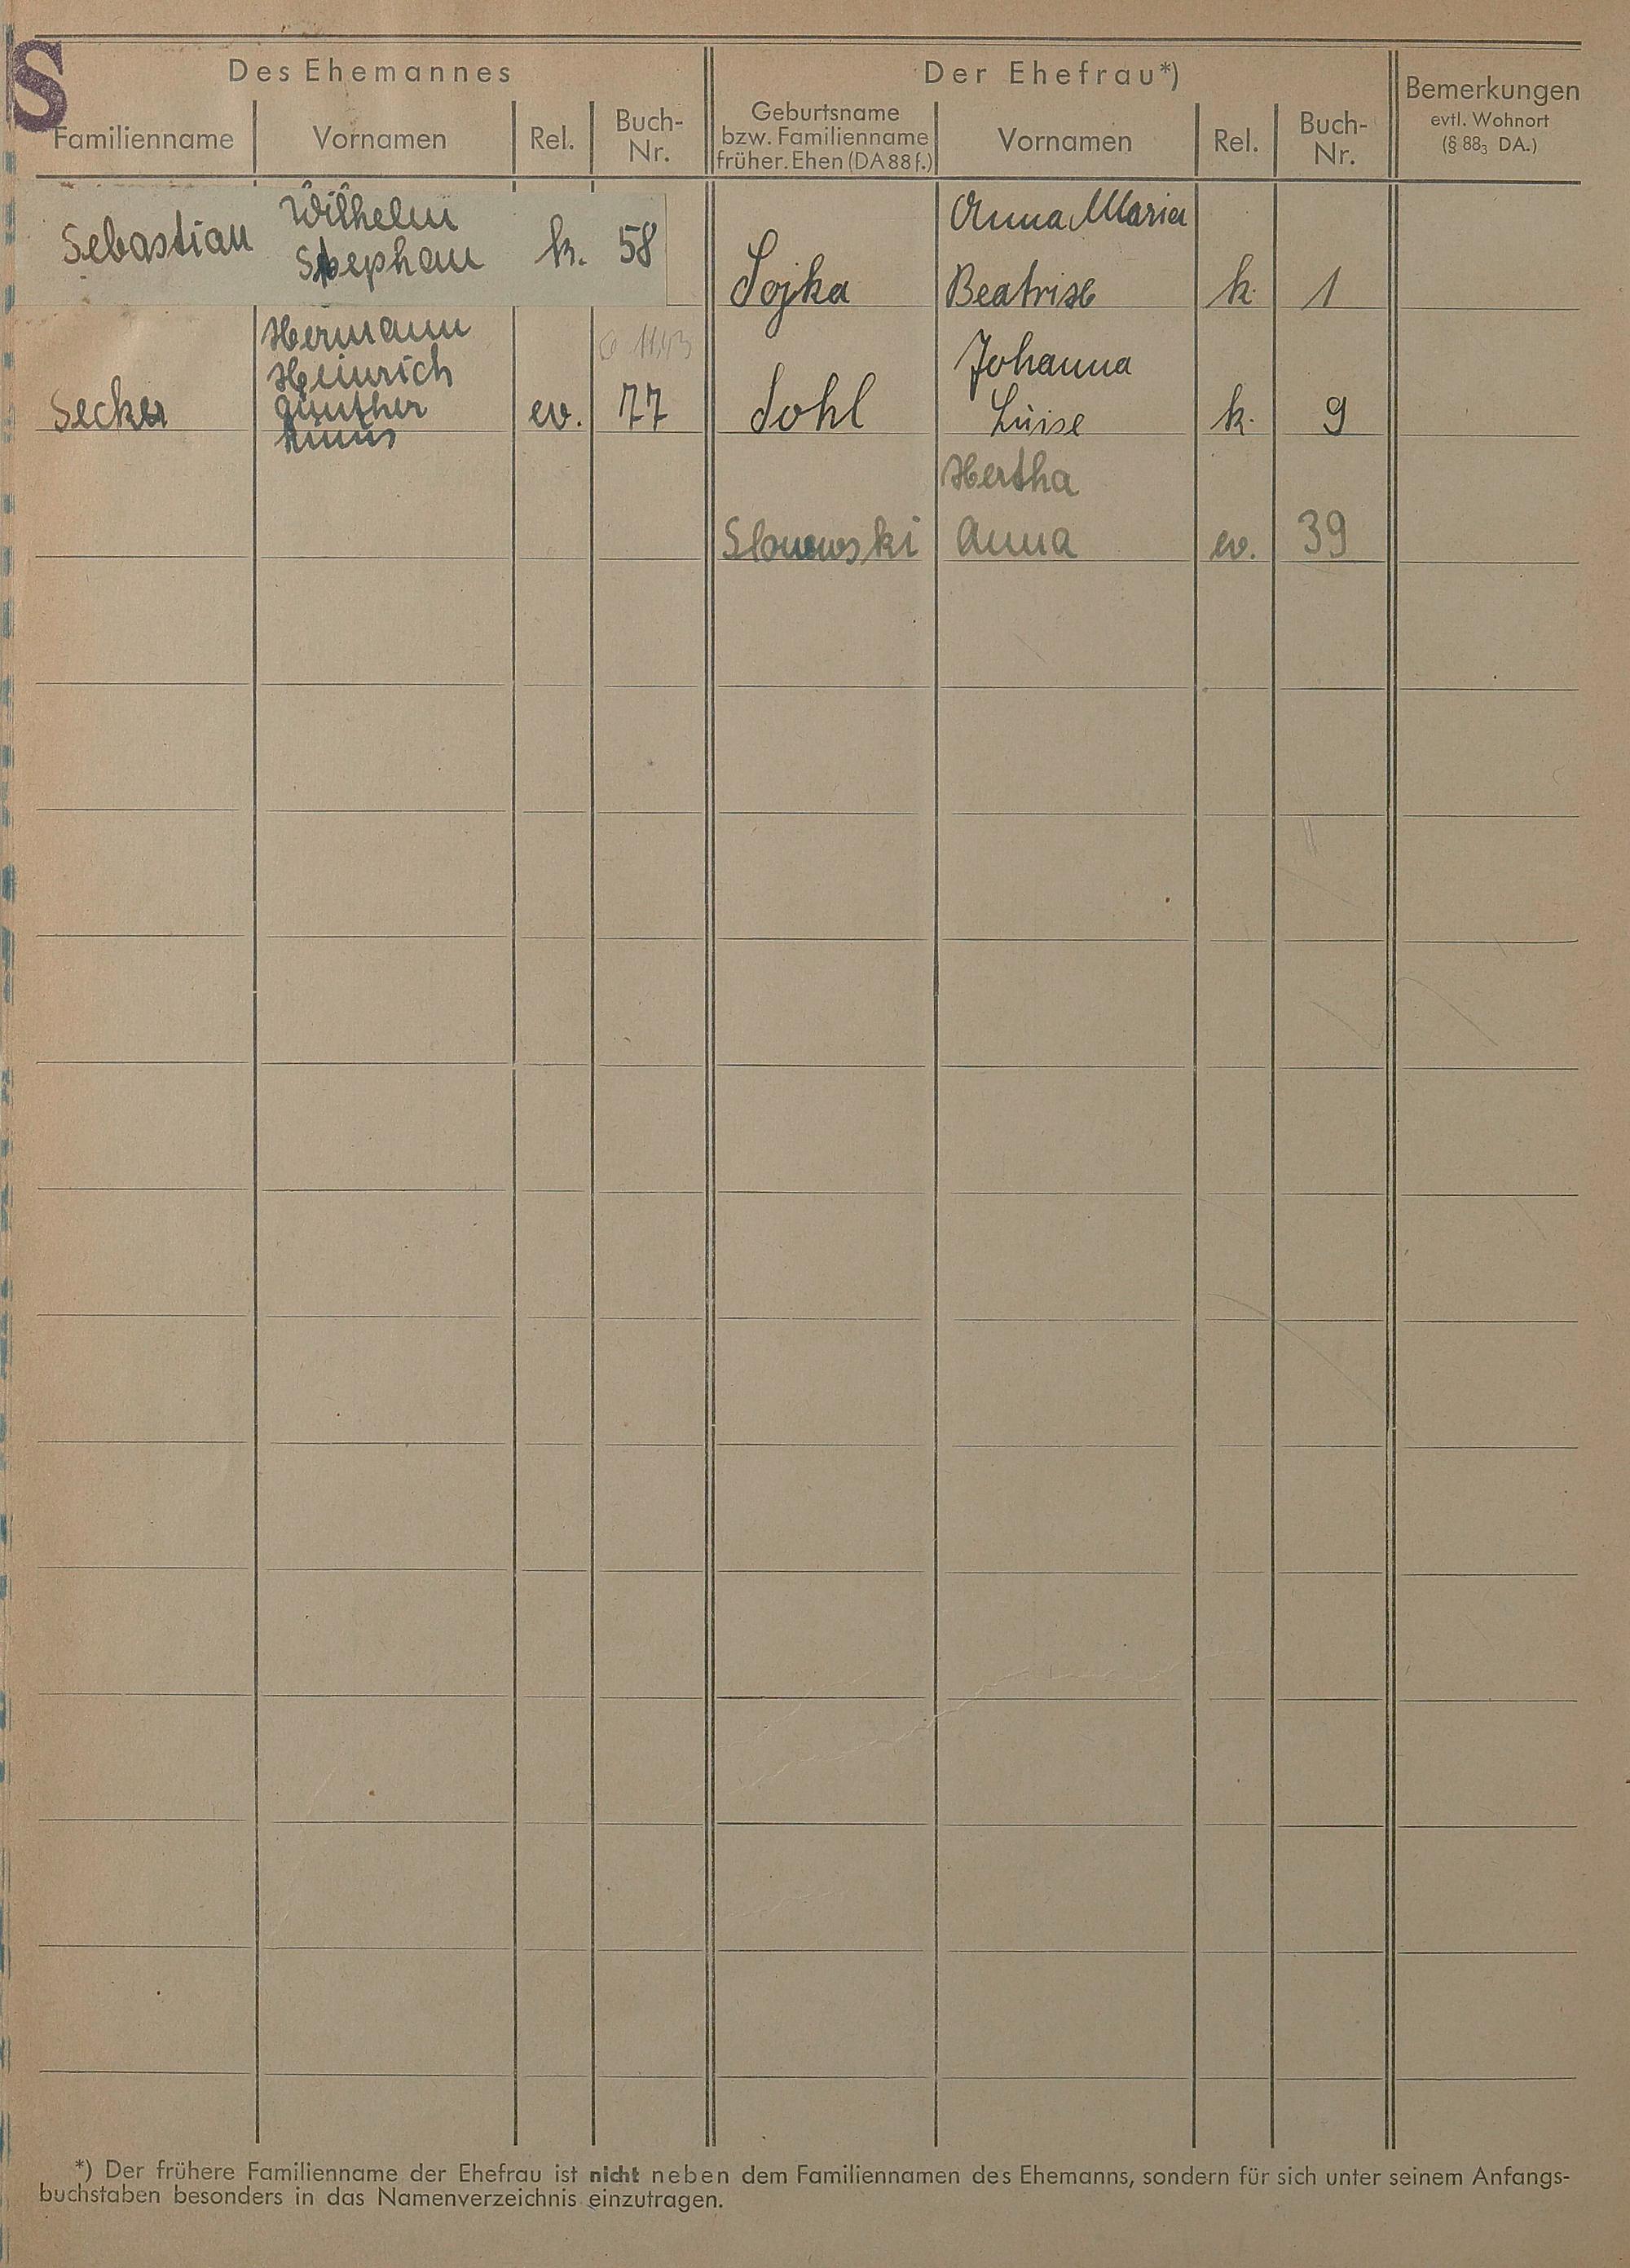 S
Des Ehemannes
Der Ehefrau*)
Bemerkungen
evtl. Wohnort
(§ 88₃ DA.)
Familienname
Vornamen
Rel.
Buch-
Nr.
Geburtsname
bzw. Familienname
früher. Ehen (DA 88 f.)
Vornamen
Rel.
Buch-
Nr.
Sebastian
Wilhelm
Stephan
k.
58
Sojka
Anna Maria
Beatrise
k.
1
Secker
Hermann
Heinrich
Günther
ev.
77
Sohl
Johanna
Luise
k.
9
Slonowski
Hertha
Anna
ev.
39
*) Der frühere Familienname der Ehefrau ist nicht neben dem Familiennamen des Ehemanns, sondern für sich unter seinem Anfangs-
buchstaben besonders in das Namenverzeichnis einzutragen.